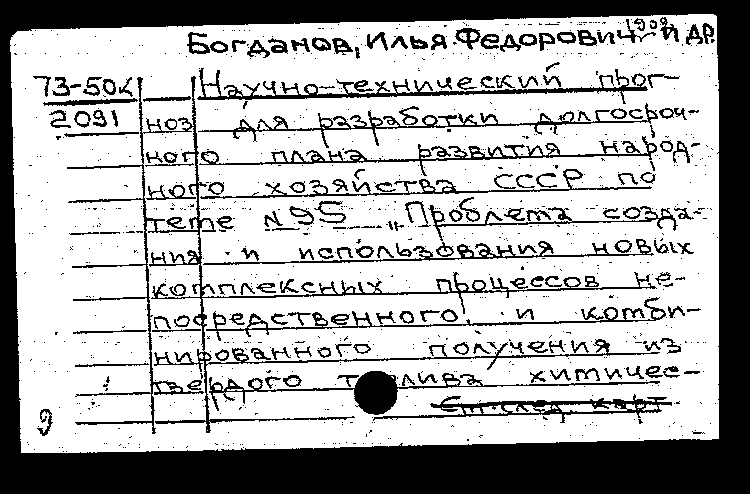 Богданов, Илья Федорович 1909 и др.
73-50к Научно-технический прог-
2091 ноз для разработки долгосроч-
ного плана развития народ-
ного хозяйства СССР по
теме №95 „Проблема созда-
ния и использования новых
комплексных процессов не-
посредственного и комби-
нированного получения из
твердого топлива химичес-
См. след. карт
9